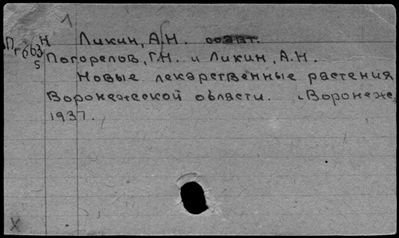 1
Н Ликин, А.Н. соавт.
Пг663
5
Погорелов, Г.Н. и Ликин, А.Н.
Новые лекарственные растения
Воронежской области. Воронеж,
1937.
X